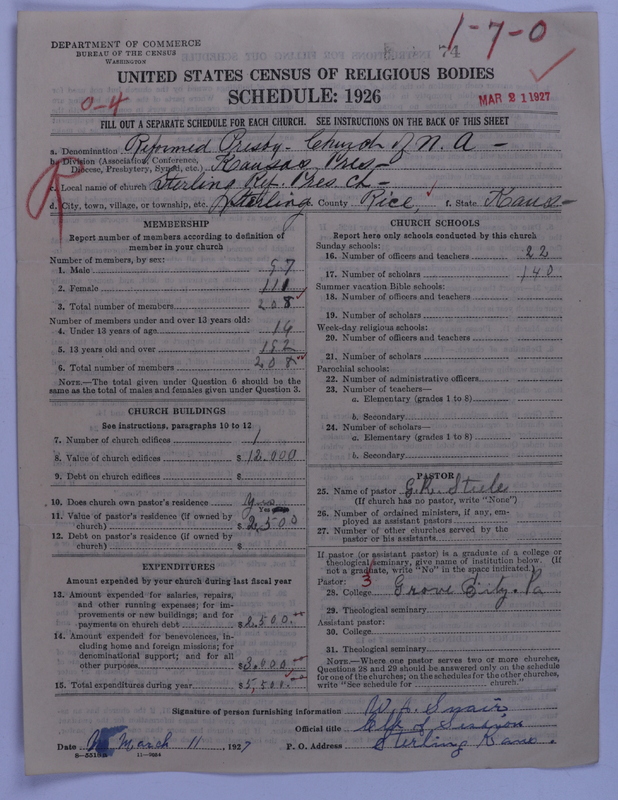 DEPARTMENT OF COMMERCE
BUREAU OF THE CENSUS
WASHINGTON
74
1-7-0
UNITED STATES CENSUS OF RELIGIOUS BODIES
SCHEDULE: 1926
0-4
MAR 21 1927
FILL OUT A SEPARATE SCHEDULE FOR EACH CHURCH. SEE INSTRUCTIONS ON THE BACK OF THIS SHEET
R
a. Denomination Reformed Presby- Church of N. A -
b. Division (Association, Conference, Diocese, Presbytery, Synod, etc.) Kansas Pres-
c. Local name of church Sterling Ref. Pres Ch-
d. City, town, village, or township, etc. Sterling e. County Rice, f. State Kans-
MEMBERSHIP
Report number of members according to definition of
member in your church
Number of members, by sex:
1. Male 97
2. Female 111
3. Total number of members 208
Number of members under and over 13 years old:
4. Under 13 years of age 16
5. 13 years old and over 192
6. Total number of members 208
NOTE.—The total given under Question 6 should be the
same as the total of males and females given under Question 3.
CHURCH BUILDINGS
See instructions, paragraphs 10 to 12
7. Number of church edifices 1
8. Value of church edifices $ 12.000
9. Debt on church edifices $
10. Does church own pastor's residence yes
Yes
11. Value of pastor's residence (if owned by
church) $ 2,500
12. Debt on pastor's residence (if owned by
church) $
EXPENDITURES
Amount expended by your church during last fiscal year
13. Amount expended for salaries, repairs,
and other running expenses; for im-
provements or new buildings; and for
payments on church debt $ 2,500.
14. Amount expended for benevolences, in-
cluding home and foreign missions; for
denominational support; and for all
other purposes $ 3,000
15. Total expenditures during year $ 5,500.
CHURCH SCHOOLS
Report here only schools conducted by this church
Sunday schools:
16. Number of officers and teachers 22
17. Number of scholars 140
Summer vacation Bible schools:
18. Number of officers and teachers
19. Number of scholars
Week-day religious schools:
20. Number of officers and teachers
21. Number of scholars
Parochial schools:
22. Number of administrative officers
23. Number of teachers—
a. Elementary (grades 1 to 8)
b. Secondary
24. Number of scholars—
a. Elementary (grades 1 to 8)
b. Secondary
PASTOR
25. Name of pastor
(If church has no pastor, write "None")
26. Number of ordained ministers, if any, em-
ployed as assistant pastors
27. Number of other churches served by the
pastor or his assistants
If pastor (or assistant pastor) is a graduate of a college or
theological seminary, give name of institution below. (If
not a graduate, write "No" in the space indicated.)
Pastor: 3
28. College Grove City, Pa
29. Theological seminary
Assistant pastor:
30. College
31. Theological seminary
NOTE.—Where one pastor serves two or more churches,
Questions 28 and 29 should be answered only on the schedule
for one of the churches; on the schedules for the other churches,
write "See schedule for church."
Signature of person furnishing information
Official title Clk of Session
Date March 11, 1927 P. O. Address Sterling Kans.
8-5510a 11-9884